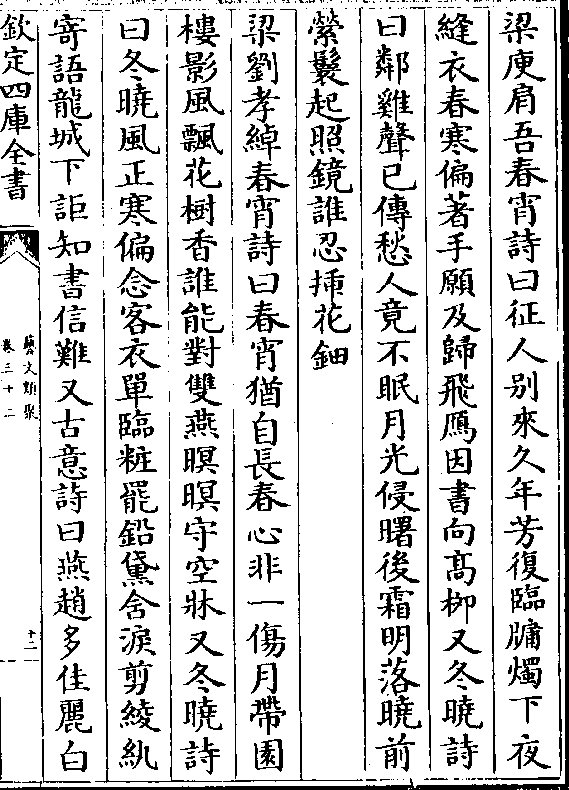 梁庾肩吾春宵詩曰征人别來久年芳復臨牗燭下夜
縫衣春寒偏著手願及歸飛鴈因書向髙柳又冬曉詩
曰鄰雞聲已傳愁人竟不眠月光侵曙後霜明落曉前
縈鬟起照鏡誰忍揷花鈿
梁劉孝綽春宵詩曰春宵猶自長春心非一傷月帶園
樓影風飄花樹香誰能對雙燕暝暝守空牀又冬曉詩
曰冬曉風正寒偏念客衣單臨粧罷鉛黛含淚剪綾紈
寄語龍城下詎知書信難又古意詩曰燕趙多佳麗白
欽定四庫全書
藝文類聚
卷三十二
十二